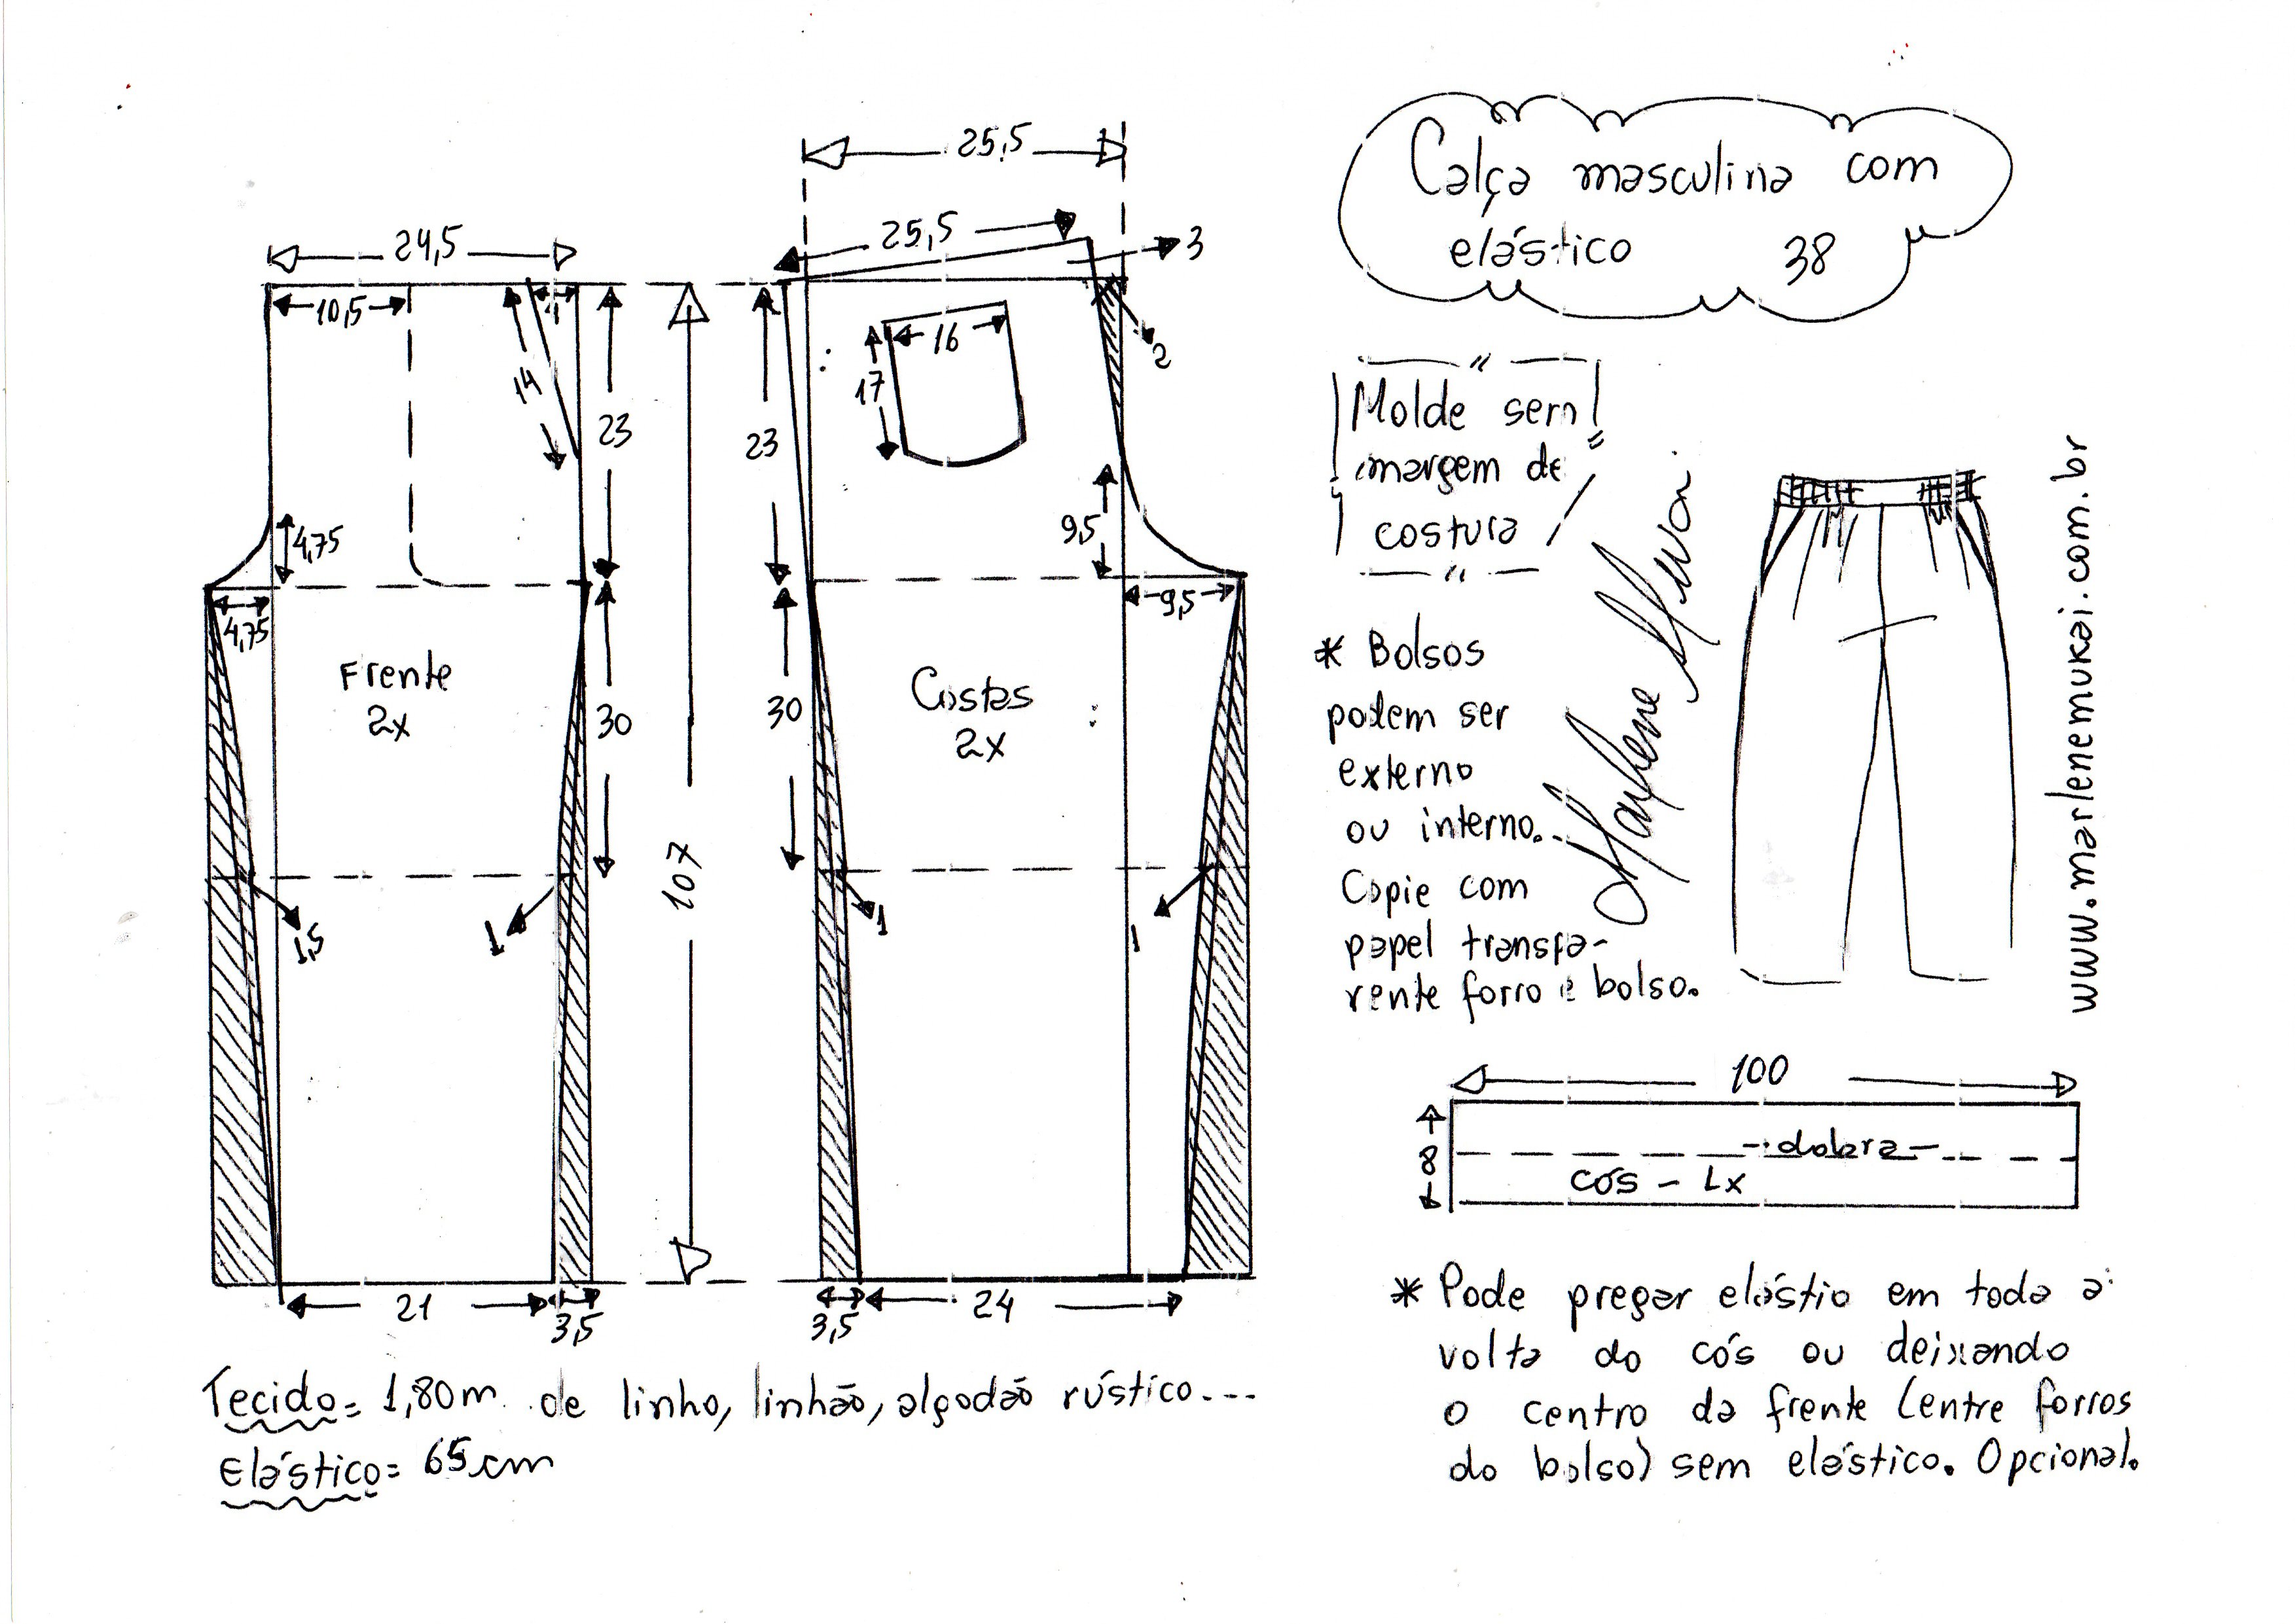 Calça masculina com
elástico 38
25,5
25,5
3
24,5
10,5
14
23
2
16
17
23
4,75
4,75
9,5
9,5
Frente
2x
30
107
30
Costas
2x
1,5
1
1
1
21
3,5
3,5
24
Molde sem
margem de
costura
* Bolsos
podem ser
externo
ou interno..
Copie com
papel transpa-
rente forro e bolso.
www.marlenemukai.com.br
100
8
dobra
cós - 1x
Tecido= 1,80m de linho, linhão, algodão rústico...
Elástico= 65cm
* Pode pregar elástio em toda a
volta do cós ou deixando
o centro da frente (entre forros
do bolso) sem elástico. Opcional.